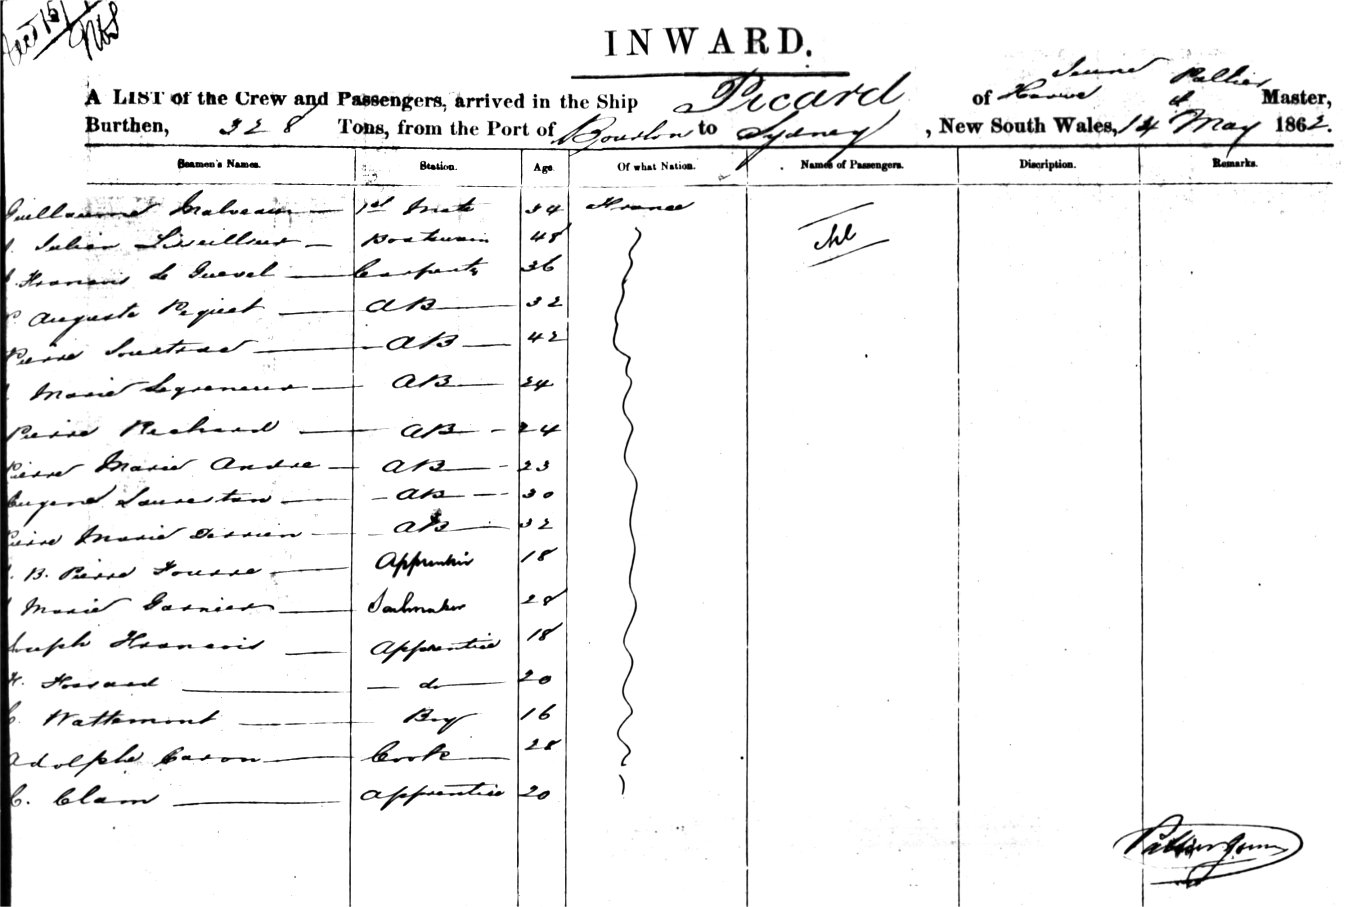 INWARD.
A LIST of the Crew and Passengers, arrived in the Ship Picard of Havre Master,
Burthen, 328 Tons, from the Port of Bourbon to Sydney, New South Wales, 14 May 1862.
Seamen's Names. Station. Age. Of what Nation. Names of Passengers. Discription. Remarks.
Guillaume 1st Mate 34 France
Julien Boatswain 48 Nil
Francois Le Guevel Carpentr 36
Auguste Piguet AB 32
Pierre AB 42
Marie AB 24
Pierre Richard AB 24
Pierre Marie Andre AB 23
Eugene AB 30
Pierre Marie Derrien AB 32
B. Pierre Fourre Apprentice 18
Marie Garnier Sailmaker 28
Joseph Francois Apprentice 18
do 20
Wattemont Boy 16
Adolphe Caron Cook 28
C. Clam Apprentice 20